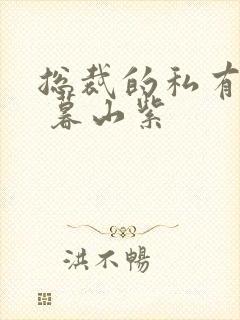 总裁的私有
暮山紫
洪不暢